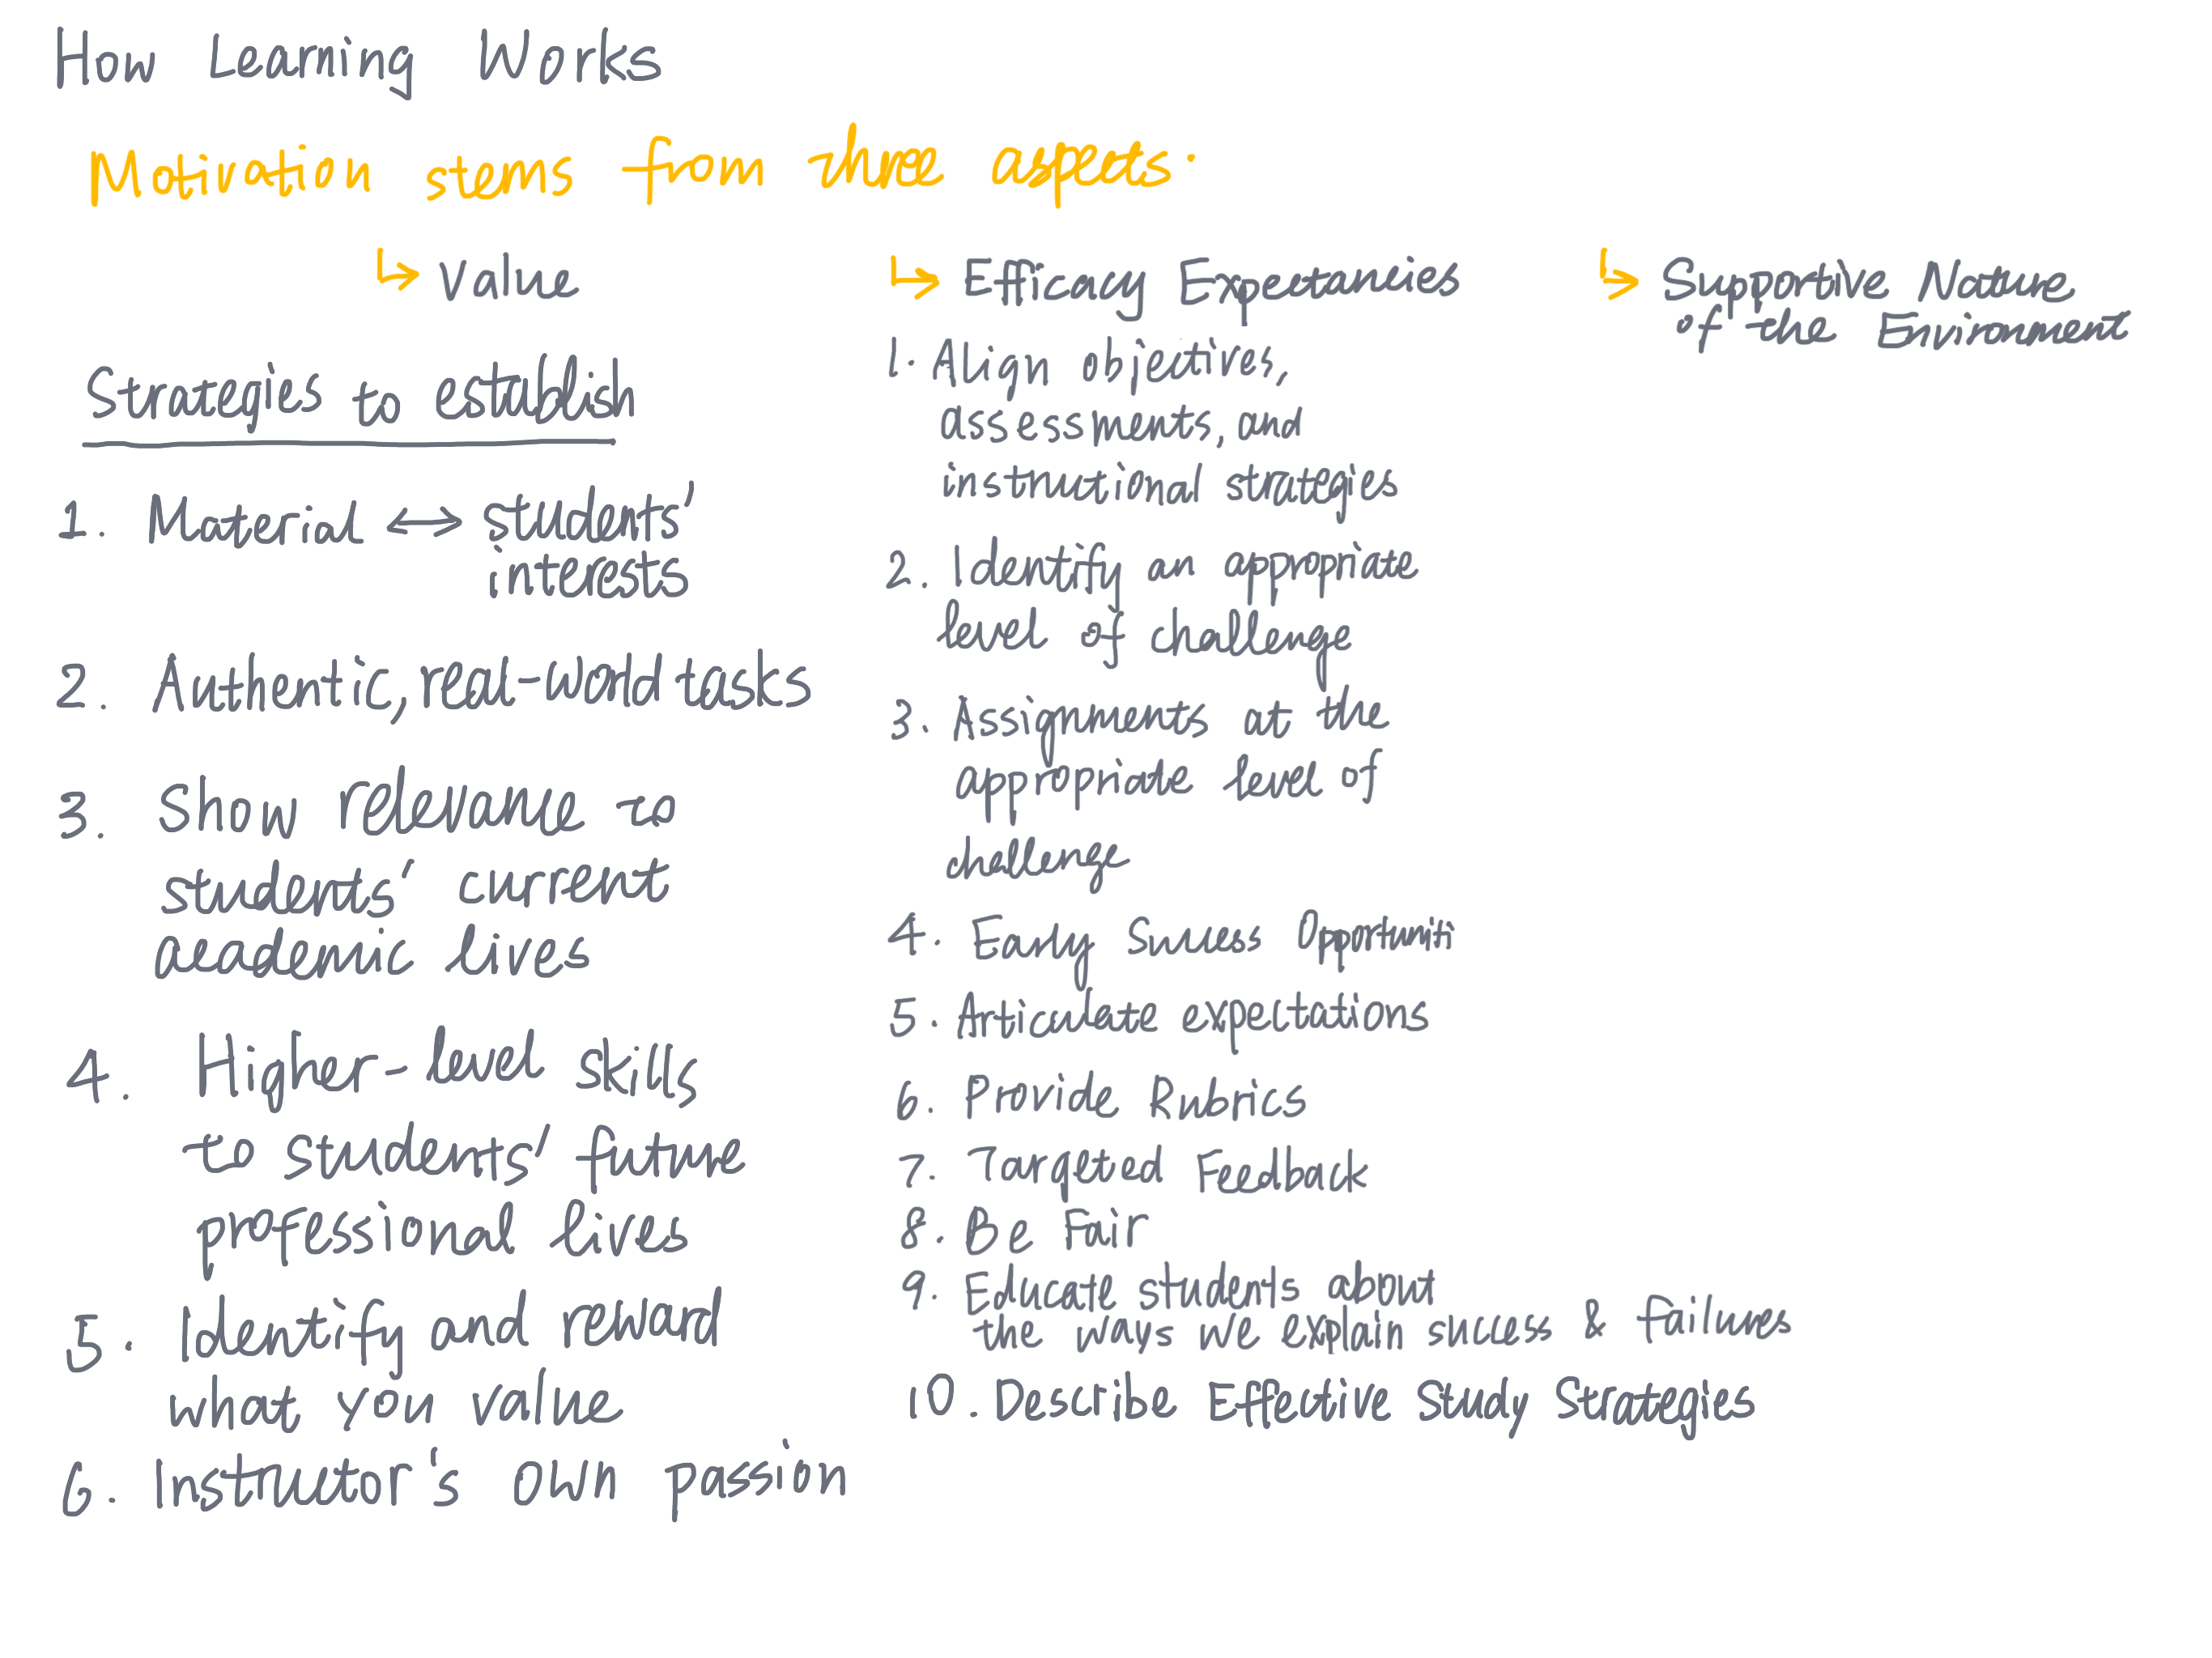 How Learning Works
Motivation stems from three aspects.
↳ Value
Strategies to establish
1. Material ↔ students'
interests
2. Authentic, real-world tasks
3. Show relevance to
students' current
academic lives
4. Higher-level skills
to students' future
professional lives
5. Identify and reward
what you value
6. Instructor's own passion
↳ Efficacy Expectancies
1. Align objectives,
assessments, and
instructional strategies
2. Identify an appropriate
level of challenge
3. Assignments at the
appropriate level of
challenge
4. Early Success Opportuniti
5. Articulate expectations
6. Provide Rubrics
7. Targeted Feedback
8. Be Fair
9. Educate students about
the ways we explain success & failures
10. Describe Effective Study Strategies
↳ Supportive Nature
of the Environment